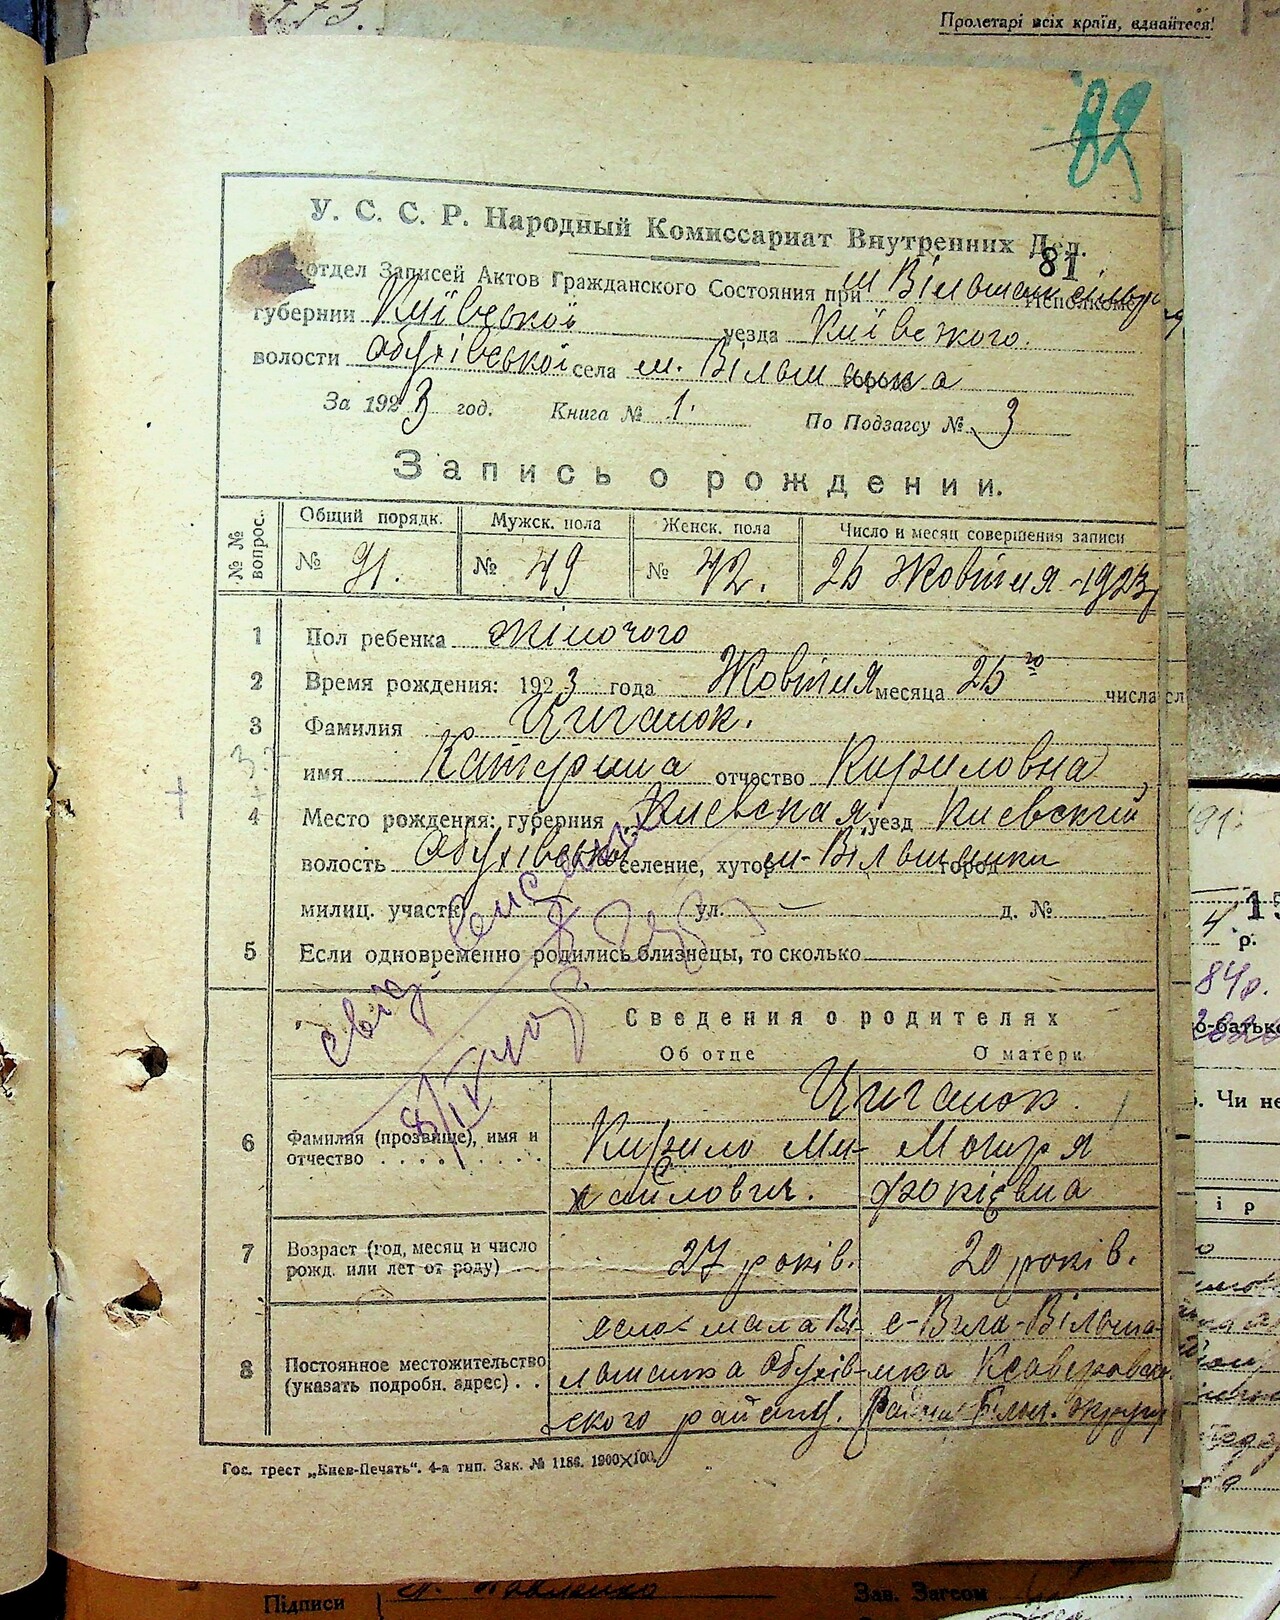 Пролетарі всіх країн, єднайтеся!
89
У. С. С. Р. Народный Комиссариат Внутренних Дел.
81
отдел Записей Актов Гражданского Состояния при м Вільшан Исполкоме
губернии Київської уезда Київського.
волости Обухівської села м. Вільшанка
За 1923 год. Книга № 1. По Подзагсу № 3
Запись о рождении.
№№ вопрос. Общий порядк. Мужск. пола Женск. пола Число и месяц совершения записи
№ 91. № 49 № 42. 25 Жовтня 1923
1 Пол ребенка жіночого
2 Время рождения: 1923 года Жовтня месяца 25го числа
3 Фамилия Циганок.
имя Катерина отчество Кириловна
4 Место рождения: губерния Киевская уезд Киевский
волость Обухівської селение, хутор м. Вільшанки город
милиц. участк ул. — д. №
5 Если одновременно родились близнецы, то сколько
Сведения о родителях
Об отце О матери
Циганок
6 Фамилия (прозвище), имя и Кирило Ми- Мотря
отчество хайлович. Фокієвна
7 Возраст (год, месяц и число
рожд. или лет от роду) 27 років. 20 років.
село мала Ві- с-Вили-Вільша-
8 Постоянное местожительство льшанка Обухів- нка Ксаверовск
(указать подробн. адрес) ского району. Району Білоц. округу
Гос. трест „Киев-Печать“. 4-а тип. Зак. № 1186. 1900×100.
Підписи Зав. Загсом